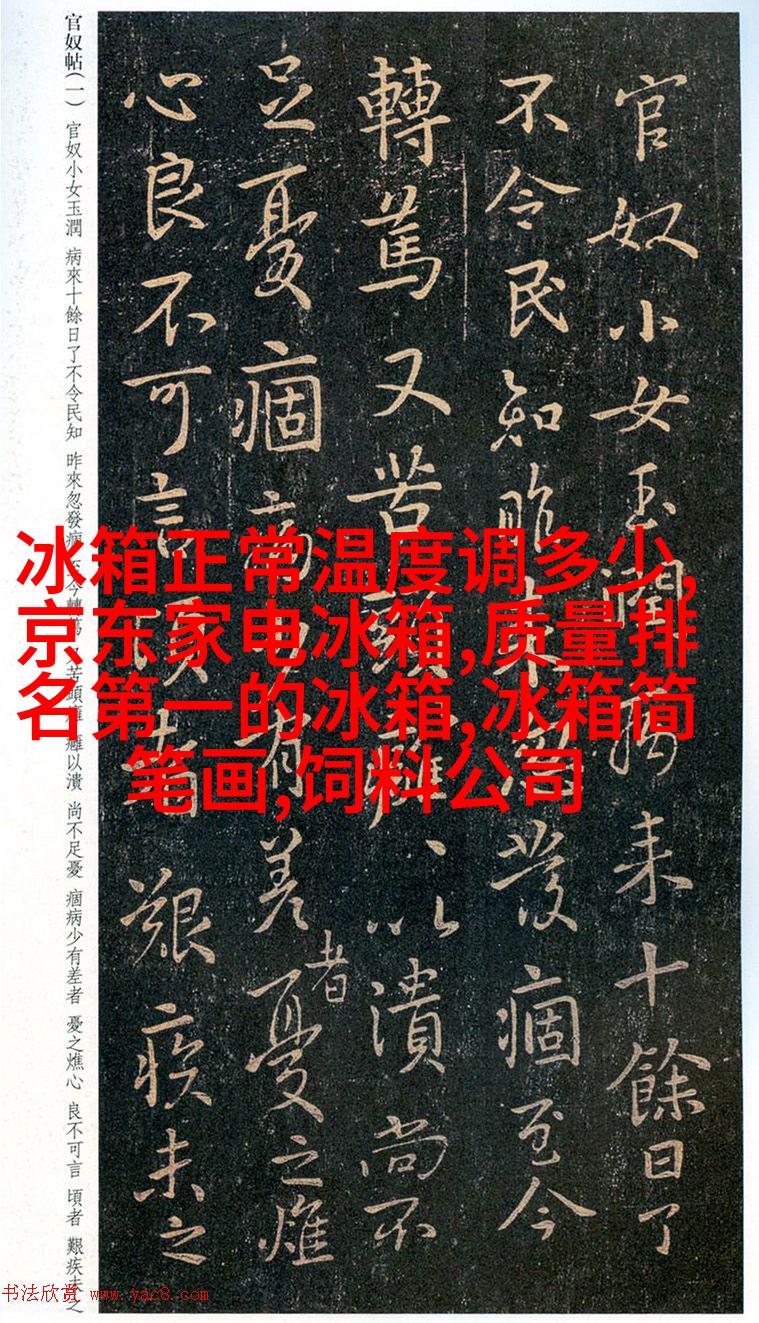 官奴小女玉潤病来十餘日了
不令民知昨来忽發痼至今
轉篤又苦頭癰、以潰尚不
足憂痼病少有差者憂之燋
心良不可言頃者艱疾未之
官奴帖(一) 官奴小女玉潤 病來十餘日了不令民知 昨來忽發痼至今轉篤 又苦頭癰 癰以潰 尚不足憂 痼病少有差者 憂之燋心 良不可言 頃者 艱疾未之
冰箱正常温度调多少,
京东家电冰箱,质量排
名第一的冰箱,冰箱简
笔画,饲料公司
书法欣赏 www.yac8.com